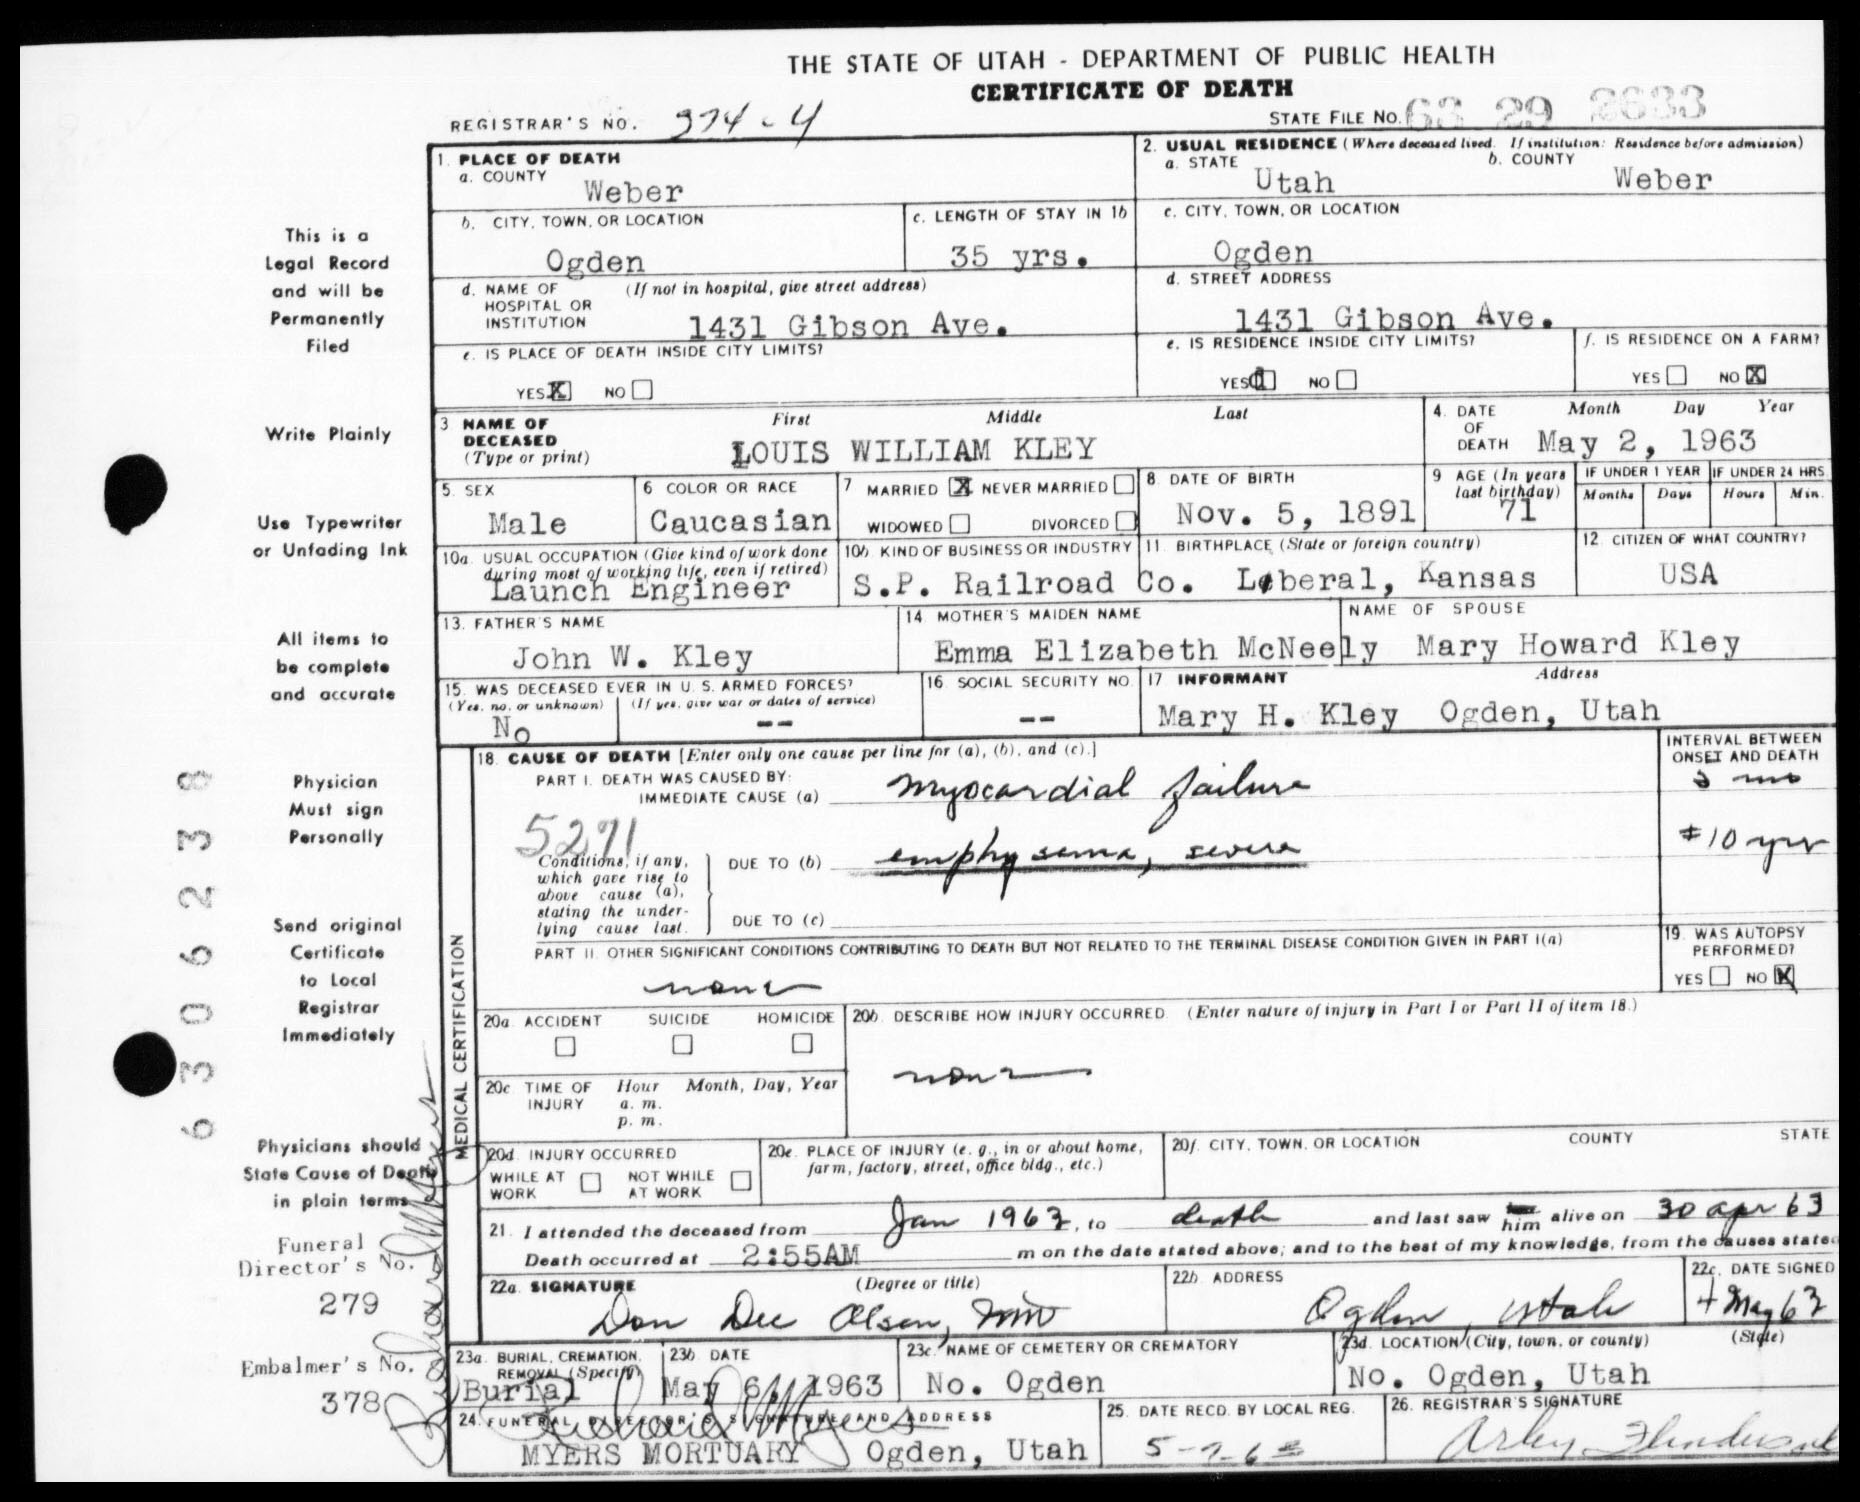 THE STATE OF UTAH - DEPARTMENT OF PUBLIC HEALTH
CERTIFICATE OF DEATH
REGISTRAR'S NO. 374-4
STATE FILE NO. 63 29 2633
1. PLACE OF DEATH
a. COUNTY
Weber
2. USUAL RESIDENCE (Where deceased lived. If institution: Residence before admission)
a. STATE
Utah
b. COUNTY
Weber
b. CITY, TOWN, OR LOCATION
Ogden
c. LENGTH OF STAY IN 1b
35 yrs.
c. CITY, TOWN, OR LOCATION
Ogden
d. NAME OF HOSPITAL OR INSTITUTION
(If not in hospital, give street address)
1431 Gibson Ave.
d. STREET ADDRESS
1431 Gibson Ave.
e. IS PLACE OF DEATH INSIDE CITY LIMITS?
YES X NO
e. IS RESIDENCE INSIDE CITY LIMITS?
YES NO
f. IS RESIDENCE ON A FARM?
YES NO X
3 NAME OF DECEASED
(Type or print)
First Middle Last
LOUIS WILLIAM KLEY
4. DATE OF DEATH
Month Day Year
May 2, 1963
5. SEX
Male
6 COLOR OR RACE
Caucasian
7 MARRIED X NEVER MARRIED
WIDOWED DIVORCED
8. DATE OF BIRTH
Nov. 5, 1891
9 AGE (In years last birthday)
71
IF UNDER 1 YEAR
Months Days
IF UNDER 24 HRS.
Hours Min.
10a. USUAL OCCUPATION (Give kind of work done during most of working life, even if retired)
Launch Engineer
10b. KIND OF BUSINESS OR INDUSTRY
S.P. Railroad Co.
11. BIRTHPLACE (State or foreign country)
Liberal, Kansas
12. CITIZEN OF WHAT COUNTRY?
USA
13. FATHER'S NAME
John W. Kley
14. MOTHER'S MAIDEN NAME
Emma Elizabeth McNeely
NAME OF SPOUSE
Mary Howard Kley
15. WAS DECEASED EVER IN U. S. ARMED FORCES?
(Yes, no, or unknown) (If yes, give war or dates of service)
No --
16. SOCIAL SECURITY NO.
--
17 INFORMANT Address
Mary H. Kley Ogden, Utah
MEDICAL CERTIFICATION
18. CAUSE OF DEATH [Enter only one cause per line for (a), (b), and (c).]
INTERVAL BETWEEN ONSET AND DEATH
PART I. DEATH WAS CAUSED BY:
IMMEDIATE CAUSE (a) myocardial failure
3 mo
5271
Conditions, if any, which gave rise to above cause (a), stating the underlying cause last.
DUE TO (b) emphysema, severe
± 10 yrs
DUE TO (c)
PART II. OTHER SIGNIFICANT CONDITIONS CONTRIBUTING TO DEATH BUT NOT RELATED TO THE TERMINAL DISEASE CONDITION GIVEN IN PART I(a)
none
19. WAS AUTOPSY PERFORMED?
YES NO X
20a. ACCIDENT SUICIDE HOMICIDE
20b. DESCRIBE HOW INJURY OCCURRED. (Enter nature of injury in Part I or Part II of item 18.)
none
20c TIME OF INJURY
Hour Month, Day, Year
a. m.
p. m.
20d. INJURY OCCURRED
WHILE AT WORK NOT WHILE AT WORK
20e. PLACE OF INJURY (e. g., in or about home, farm, factory, street, office bldg., etc.)
20f. CITY, TOWN, OR LOCATION COUNTY STATE
21. I attended the deceased from Jan 1963, to death and last saw him alive on 30 apr 63
Death occurred at 2:55AM m on the date stated above; and to the best of my knowledge, from the causes stated
22a. SIGNATURE (Degree or title)
Don Dee Olsen, MD
22b. ADDRESS
Ogden, Utah
22c. DATE SIGNED
4 May 63
23a. BURIAL, CREMATION, REMOVAL (Specify)
Burial
23b DATE
May 6, 1963
23c. NAME OF CEMETERY OR CREMATORY
No. Ogden
23d. LOCATION (City, town, or county) (State)
No. Ogden, Utah
24. FUNERAL DIRECTOR'S SIGNATURE AND ADDRESS
Richard Myers
MYERS MORTUARY Ogden, Utah
25. DATE RECD. BY LOCAL REG.
5-7-63
26. REGISTRAR'S SIGNATURE
This is a
Legal Record
and will be
Permanently
Filed
Write Plainly
Use Typewriter
or Unfading Ink
All items to
be complete
and accurate
Physician
Must sign
Personally
Send original
Certificate
to Local
Registrar
Immediately
Physicians should
State Cause of Death
in plain terms
Funeral
Director's No.
279
Embalmer's No.
378
Richard Myers
6306238